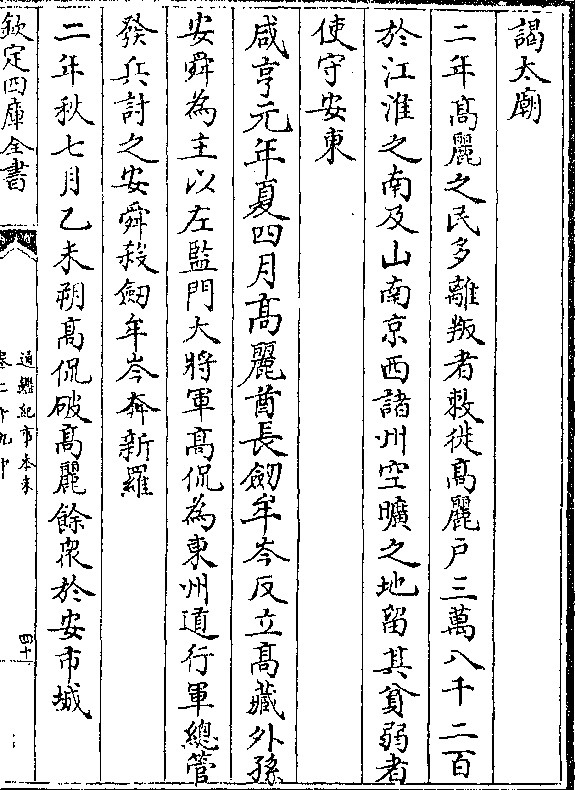 謁太廟
二年髙麗之民多離叛者敕徙髙麗戸三萬八千二百
於江淮之南及山南京西諸州空曠之地留其貧弱者
使守安東
咸亨元年夏四月髙麗酋長劒牟岑反立髙藏外孫
安舜為主以左監門大將軍髙侃為東州道行軍總管
發兵討之安舜殺劒牟岑奔新羅
二年秋七月乙未朔髙侃破髙麗餘衆於安市城
欽定四庫全書
通鑑紀事本末
卷二十九中
四十